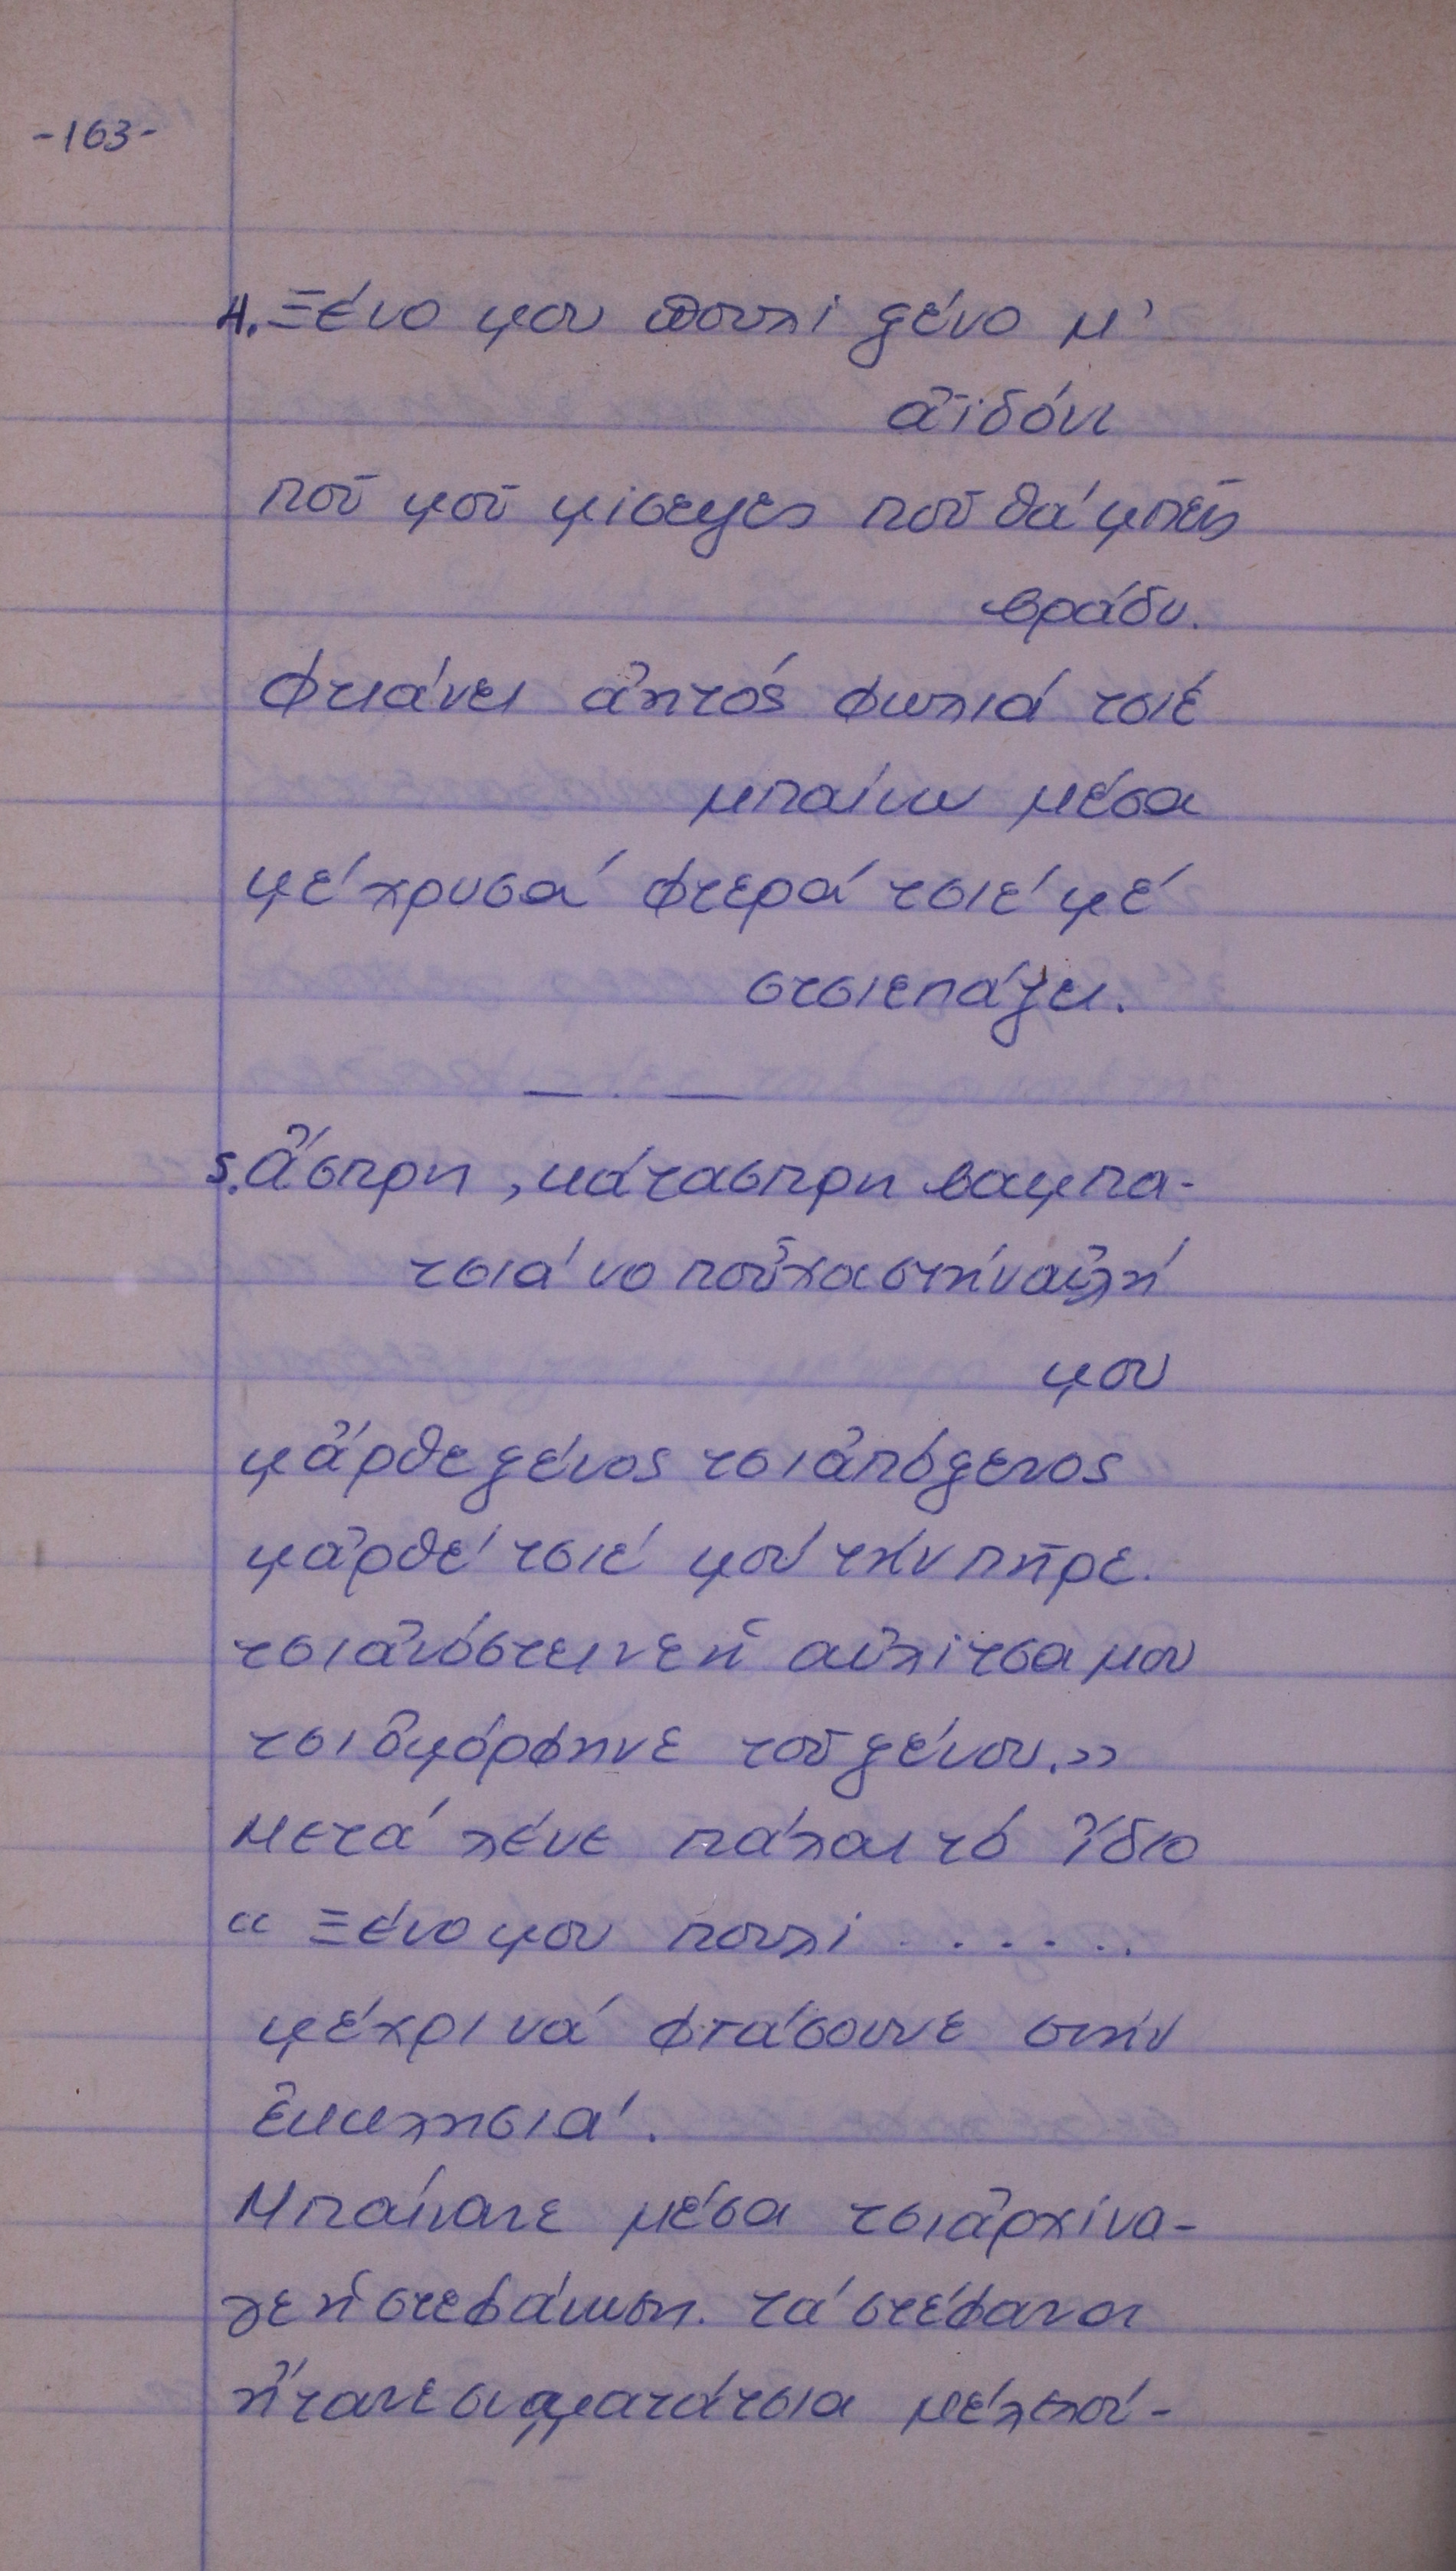 -163-
4. Ξένο μου πουλί ξένο μ'
ἀϊδόνι
ποῦ μοῦ μίσεψες ποῦ θά μπεῖς
βράδυ.
Φτιάνει ἀητός φωλιά τσιέ
μπαίνω μέσα
μέ χρυσά φτερά τσιέ μέ
στσιεπάζει.
— . —
5. Ἄσπρη, κάτασπρη βαμπα-
τσιά νο ποὖχα στήν αὐλή
μου
μἄρθε ξένος τσι ἀπόξενος
μἀρθέ τσιέ μού τήν πῆρε.
τσι ἀνόστεινε ἡ αὐλίτσα μου
τσι ὀμόρφηνε τοῦ ξένου.»
Μετά λένε πάλαι τό ἴδιο
« Ξένο μου πουλί ......
μέχρι νά φτάσουνε στήν
ἐκκλησιά.
Μπαίνανε μέσα τσι ἀρχίνα-
γε ἡ στεφάνωση. τά στέφανα
ἤτανε